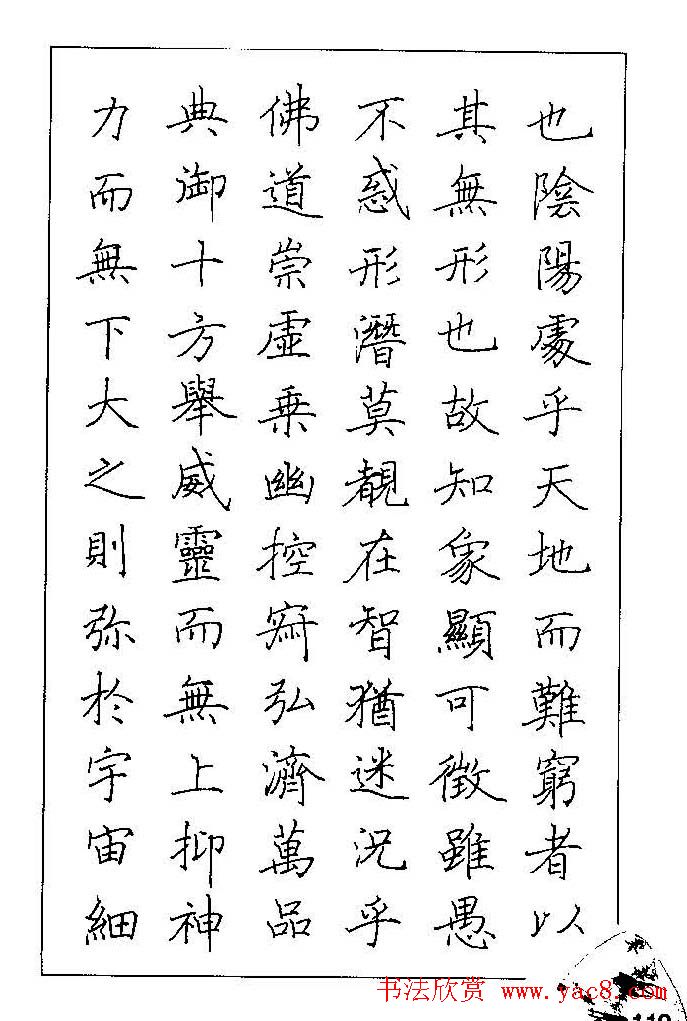 也陰陽處乎天地而難窮者以
其無形也故知象顯可徵雖愚
不惑形潛莫覩在智猶迷況乎
佛道崇虛乗幽控寂弘濟萬品
典御十方舉威靈而無上抑神
力而無下大之則弥於宇宙細
书法欣赏 www.yac8.com
110